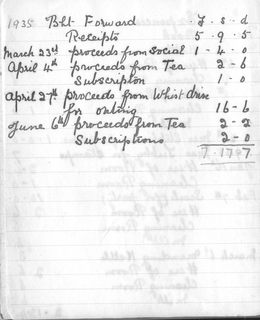 1935 Bht Forward £ s d
Receipts 5-9-5
March 23rd proceeds from Social 1-4-0
April 4th proceeds from Tea 2-6
Subscription 1-0
April 27th proceeds from Whist drive
for outing 16-6
June 6th proceeds from Tea 2-2
Subscriptions 2-0
7-17-7